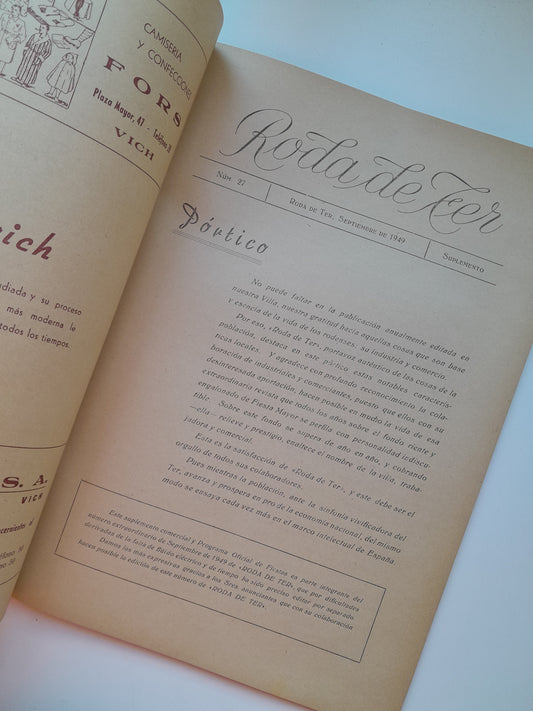 CAMISERIA
Y CONFECCIONES
FORS
Plaza Mayor, 47 - Teléfono
VICH
ich
diada y su proceso
más moderna le
todos los tiempos.
S. A.
VICH
Roda de Ter
NÚM. 27
RODA DE TER, SEPTIEMBRE DE 1949
SUPLEMENTO
Pórtico
No puede faltar en la publicación anualmente editada en
nuestra Villa, nuestra gratitud hacia aquellas cosas que son base
y esencia de la vida de los rodenses, su industria y comercio.
Por eso, «Roda de Ter», portavoz auténtico de las cosas de la
población, destaca en este pórtico estas notables caracterís-
ticas locales. Y agradece con profundo reconocimiento la cola-
boración de industriales y comerciantes, puesto que ellos con su
desinteresada aportación, hacen posible en mucho la vida de esa
extraordinaria revista que todos los años sobre el fondo riente y
engalonado de Fiesta Mayor se perfila con personalidad indiscu-
tible. Sobre este fondo se supera de año en año, y cobrando
—ella— relieve y prestigio, enaltece el nombre de la villa, traba-
jadora y comercial.
Esta es la satisfacción de «Roda de Ter», y este debe ser el
orgullo de todos sus colaboradores.
Pues mientras la población, ante la sinfonía vivificadora del
Ter, avanza y prospera en pro de la economía nacional, del mismo
modo se ensaya cada vez más en el marco intelectual de España.
Este suplemento comercial y Programa Oficial de Fiestas es parte integrante del
número extraordinario de Septiembre de 1949 de «RODA DE TER», que por dificultades
derivadas de la falta de flúido eléctrico y de tiempo ha sido preciso editar por separado
Damos las más expresivas gracias a los Sres. anunciantes que con su colaboración
hacen posible la edición de este número de «RODA DE TER».